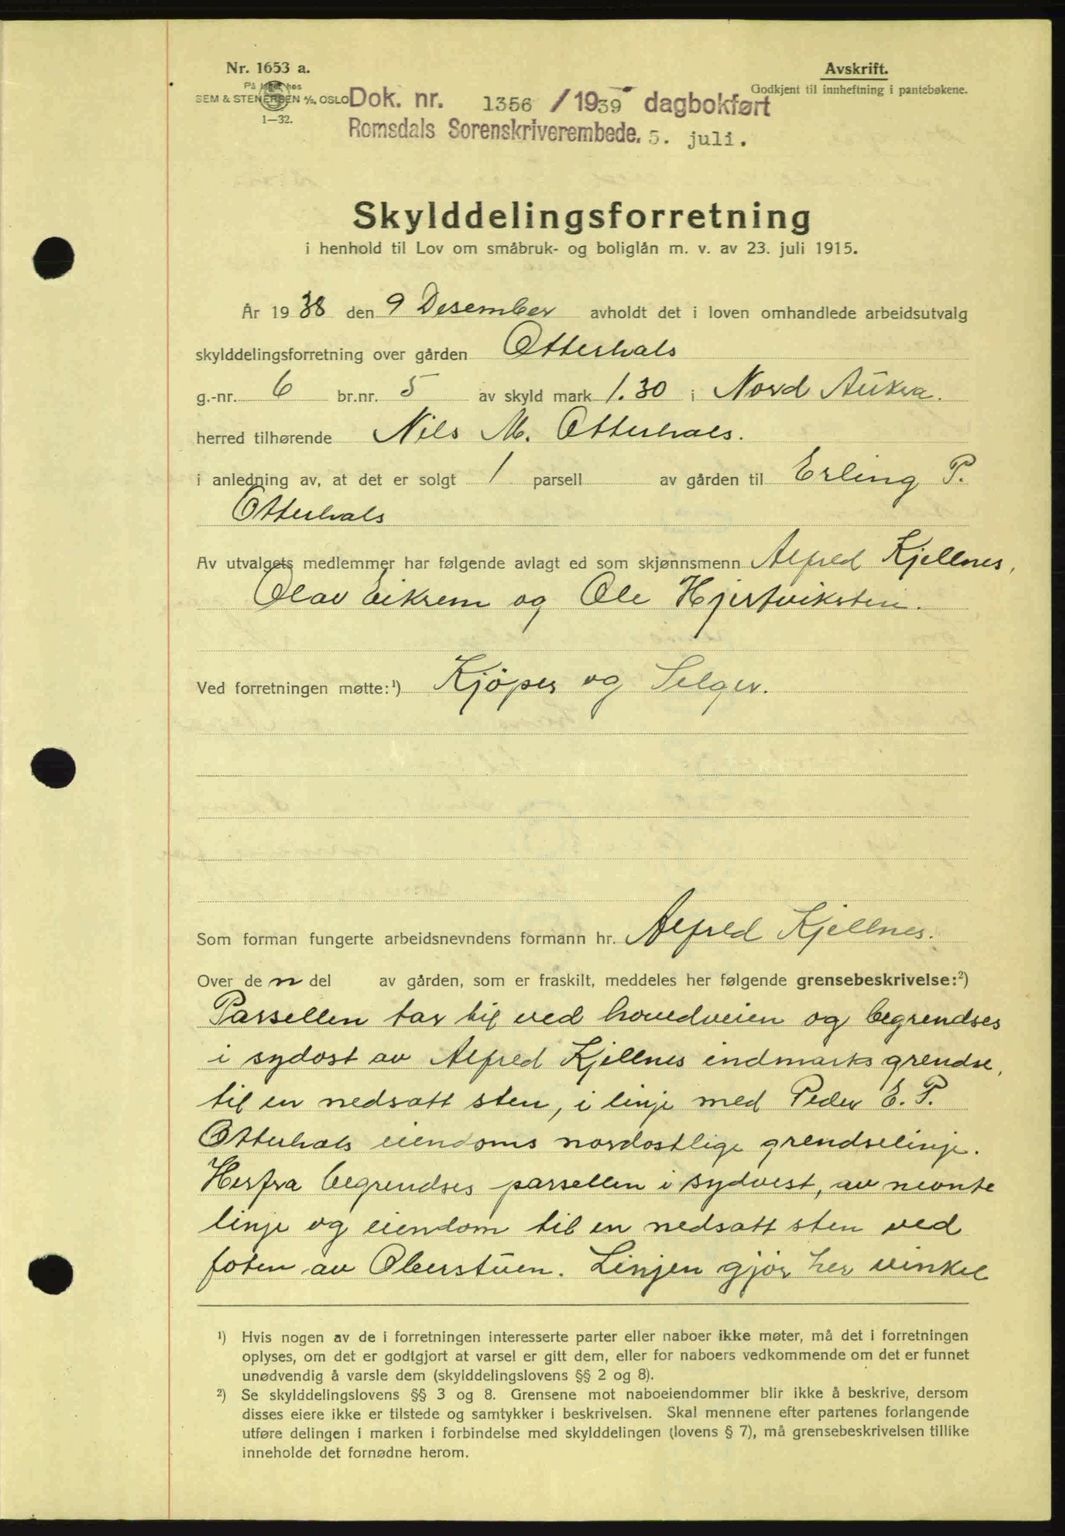 Nr. 1653 a.
På lager hos
SEM & STENERSEN A/S, OSLO
1—32.
Avskrift.
Godkjent til innheftning i pantebøkene.
Dok. nr. 1356 / 1939 dagbokført
Romsdals Sorenskriverembede. 5. juli.
Skylddelingsforretning
i henhold til Lov om småbruk- og boliglån m. v. av 23. juli 1915.
År 1938 den 9 Desember avholdt det i loven omhandlede arbeidsutvalg
skylddelingsforretning over gården Otterhals
g.-nr. 6 br.nr. 5 av skyld mark 1.30 i Nord Aukra.
herred tilhørende Nils M. Otterhals.
i anledning av, at det er solgt 1 parsell av gården til Erling P.
Otterhals
Av utvalgets medlemmer har følgende avlagt ed som skjønnsmenn Alfred Kjellnes,
Olav Eikrem og Ole Hjertviksten.
Ved forretningen møtte:¹) Kjöper og Selger.
Som forman fungerte arbeidsnevndens formann hr. Alfred Kjellnes.
Over den del av gården, som er fraskilt, meddeles her følgende grensebeskrivelse:²)
Parsellen tar til ved hovedveien og begrendses
i sydost av Alfred Kjellnes indmarks grendse,
til en nedsatt sten, i linje med Peder E. P.
Otterhals eiendoms nordostlige grendselinje.
Herfra begrendses parsellen i sydvest, av nevnte
linje og eiendom til en nedsatt sten ved
foten av Oberstuen. Linjen gjör her vinkel
¹) Hvis nogen av de i forretningen interesserte parter eller naboer ikke møter, må det i forretningen
oplyses, om det er godtgjort at varsel er gitt dem, eller for naboers vedkommende om det er funnet
unødvendig å varsle dem (skylddelingslovens §§ 2 og 8).
²) Se skylddelingslovens §§ 3 og 8. Grensene mot naboeiendommer blir ikke å beskrive, dersom
disses eiere ikke er tilstede og samtykker i beskrivelsen. Skal mennene efter partenes forlangende
utføre delingen i marken i forbindelse med skylddelingen (lovens § 7), må grensebeskrivelsen tillike
inneholde det fornødne herom.